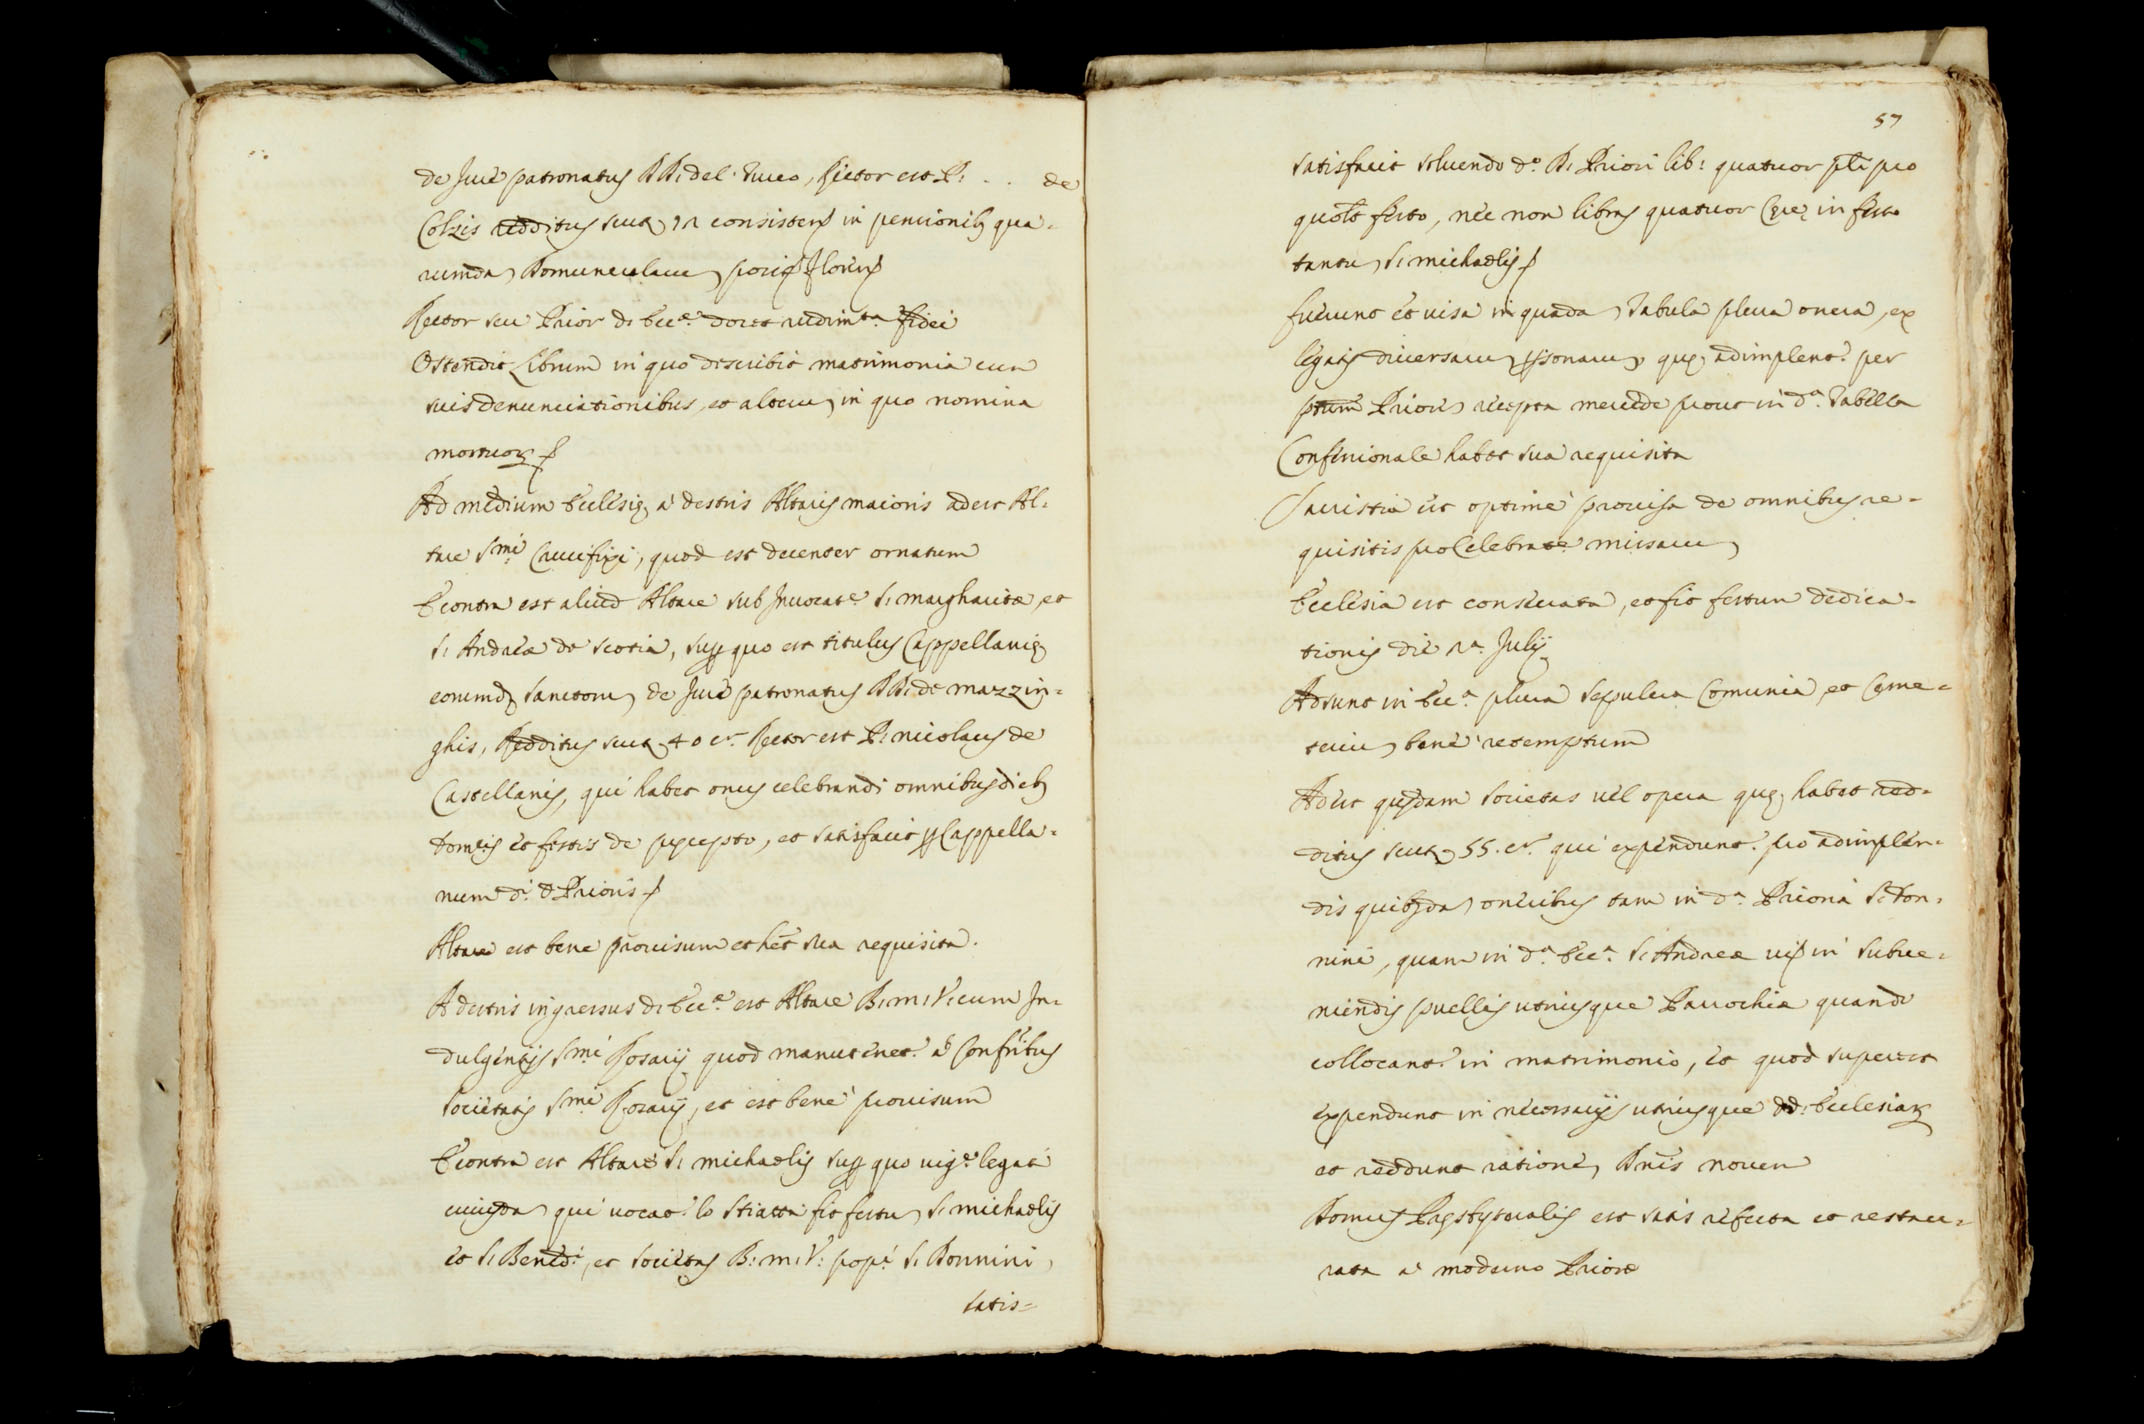 de Jure patronatus DD: del Turco, Rector est P: . . de
Colzis redditus scut. 12 consistens in pensionibus qua-
rumda Domuncularu positis Floren.
Rector seu Prior d: Ecc.ae docet rudim.ta fidei
Ostendit Librum in quo describit matrimonia cum
suis denunciationibus, et alteru in quo nomina
mortuor.
Ad medium Ecclesię à destris Altaris maioris adest Al-
tare S.mi Crucifixi, quod est decenter ornatum
E contra est aliud Altare sub Invocat.e S: Margharitæ, et
S: Andreæ de Scotia, sup quo est titulus Cappellanię
eorumd. Sanctoru de Jure patronatus DD: de Mazzin-
ghis, Redditus scut. 40 cr. Rector est P: Nicolaus de
Castellanis, qui habet onus celebrandi omnibus dieb.
domcis et festis de precepto, et satisfacit p Cappella-
num d.i D Prioris
Altare est bene prouisum et hęt sua requisita.
A destris ingressus d: Ecc.ae est Altare B: M: V: cum In-
dulgentijs S.mi Rosarij quod manutenet.r à Confribus
societatis S.mi Rosarij, et est bene prouisum
E contra est Altare S: Michaelis sup quo uig.e legati
cuiusda qui uocat.r lo Stiatta fit festu S: Michaelis
et S: Bened.i, et societas B: M: V: pop.i S: Donnini,
satis=
57
satisfacit soluendo d.o D: Priori lib: quatuor pti pro
quolt festo, nec non libras quatuor Cere in festo
tantu S: Michaelis
fuerunt et uisa in quada Tabula plura onera, ex
legatis diuersaru psonaru que adimplent.r per
ptum Priore recepta mercede prout in d.a Tabella
Confessionale habet sua requisita
Sacristia est optime prouisa de omnibus re-
quisitis pro Celebrat.e missaru
Ecclesia est consecrata, et fit festum dedica-
tionis die 12 Julij
Adsunt in Ecc.a plura sepulcra Comunia, et Cęme-
teriu bene retemptum
Adest quędam societas uel opera quę habet red-
ditus scut. 55. cr. qui expendunt.r pro adimplen-
dis quibusda oneribus tam in d.a Prioria S: Don-
nini, quam in d.a Ecc.a S: Andreæ in subue-
niendis puellis utriusque Parochiæ quando
collocant.r in matrimonio, et quod superest
expendunt in necessarijs utriusque dd: Ecclesiar.
et reddunt ratione Dnis nouem
Domus Pręsbyteralis est satis refecta et restau-
rata à moderno Priore